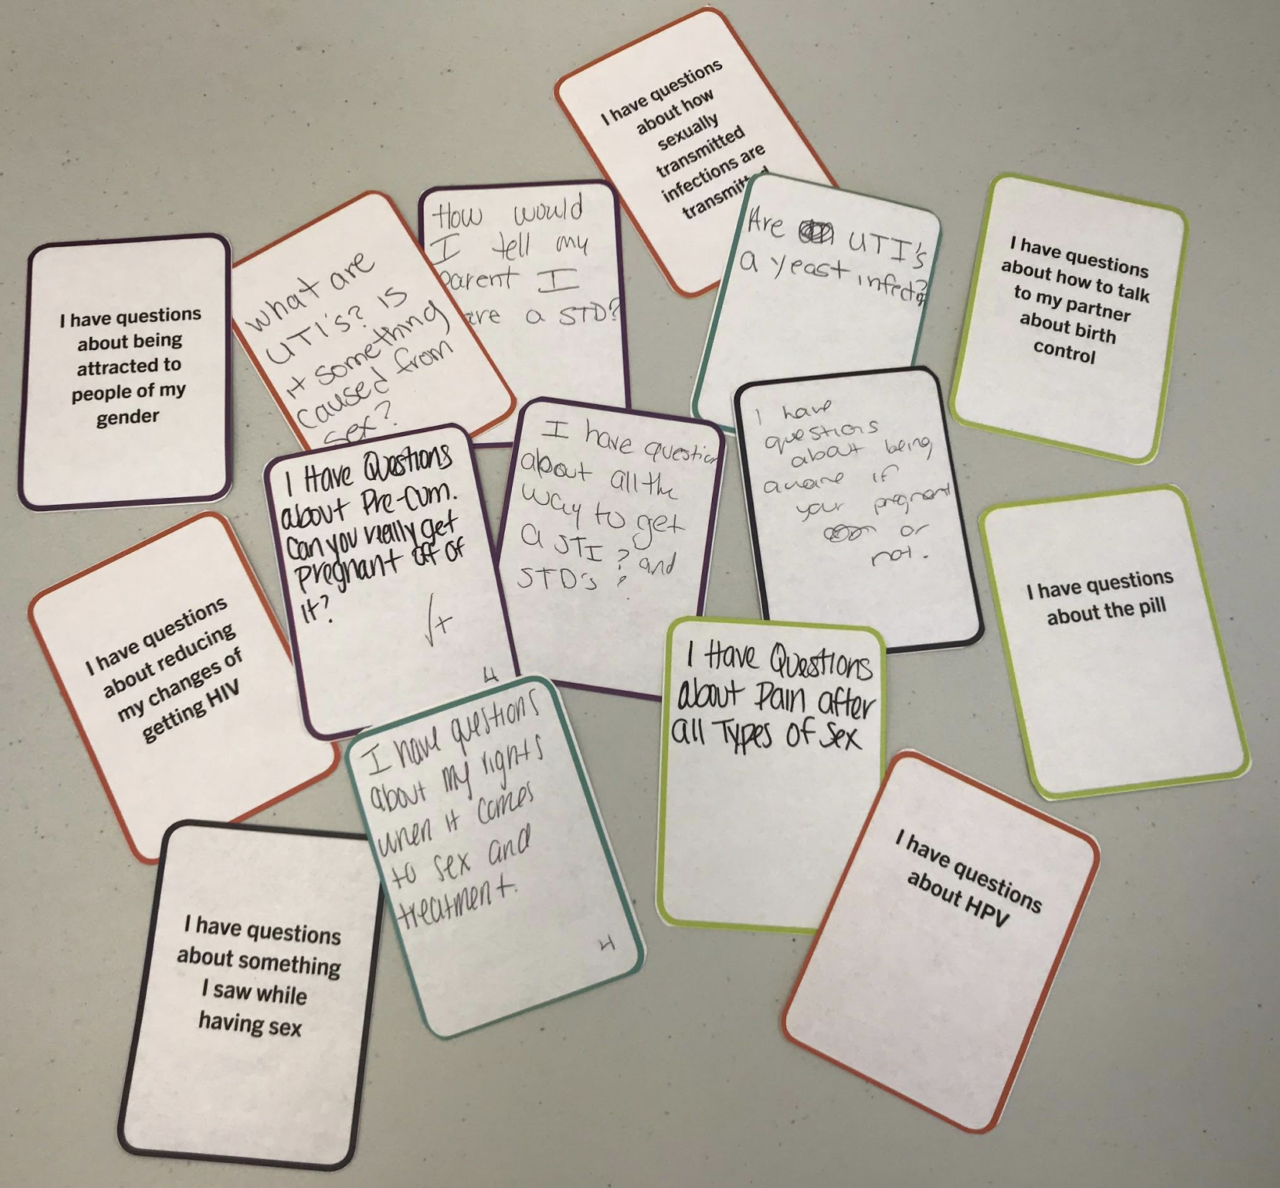 I have questions
about how
sexually
transmitted
infections are
I have questions
about being
attracted to
people of my
gender
What are
UTI's? is
it something
caused from
sex?
How would
I tell my
parent I
a STD?
Are UTI's
a yeast infect?
I have questions
about how to talk
to my partner
about birth
control
I Have Questions
about Pre-cum.
Can you really get
pregnant off of
it?
4
I have
about all the
way to get
a STI? and
STD's?
I have
questions
about being
aware if
your pregnant
or
not.
I have questions
about the pill
I have questions
about reducing
my changes of
getting HIV
I have questions
about my rights
when it comes
to sex and
treatment.
4
I Have Questions
about Pain after
all Types of Sex
I have questions
about something
I saw while
having sex
I have questions
about HPV